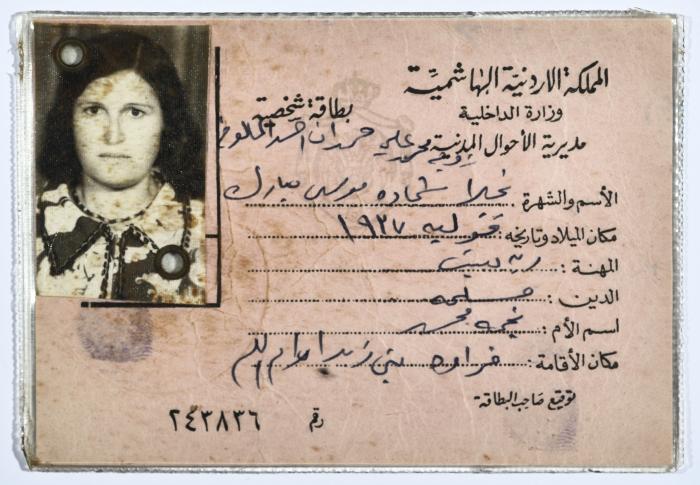 المملكة الاردنية الهاشمية
وزارة الداخلية
بطاقة شخصية
مديرية الأحوال المدنية
زوجة محمد علي حمدان احمد
الأسم والشهرة : نجلا شحاده موسى مبارك
مكان الميلاد وتاريخه : ١٩٣٧
المهنة : ربة بيت
الدين : مسلمه
اسم الأم : نجمه محمد
مكان الأقامة : بني زيد / رام الله
توقيع صاحب البطاقة
رقم ٢٤٣٨٣٦